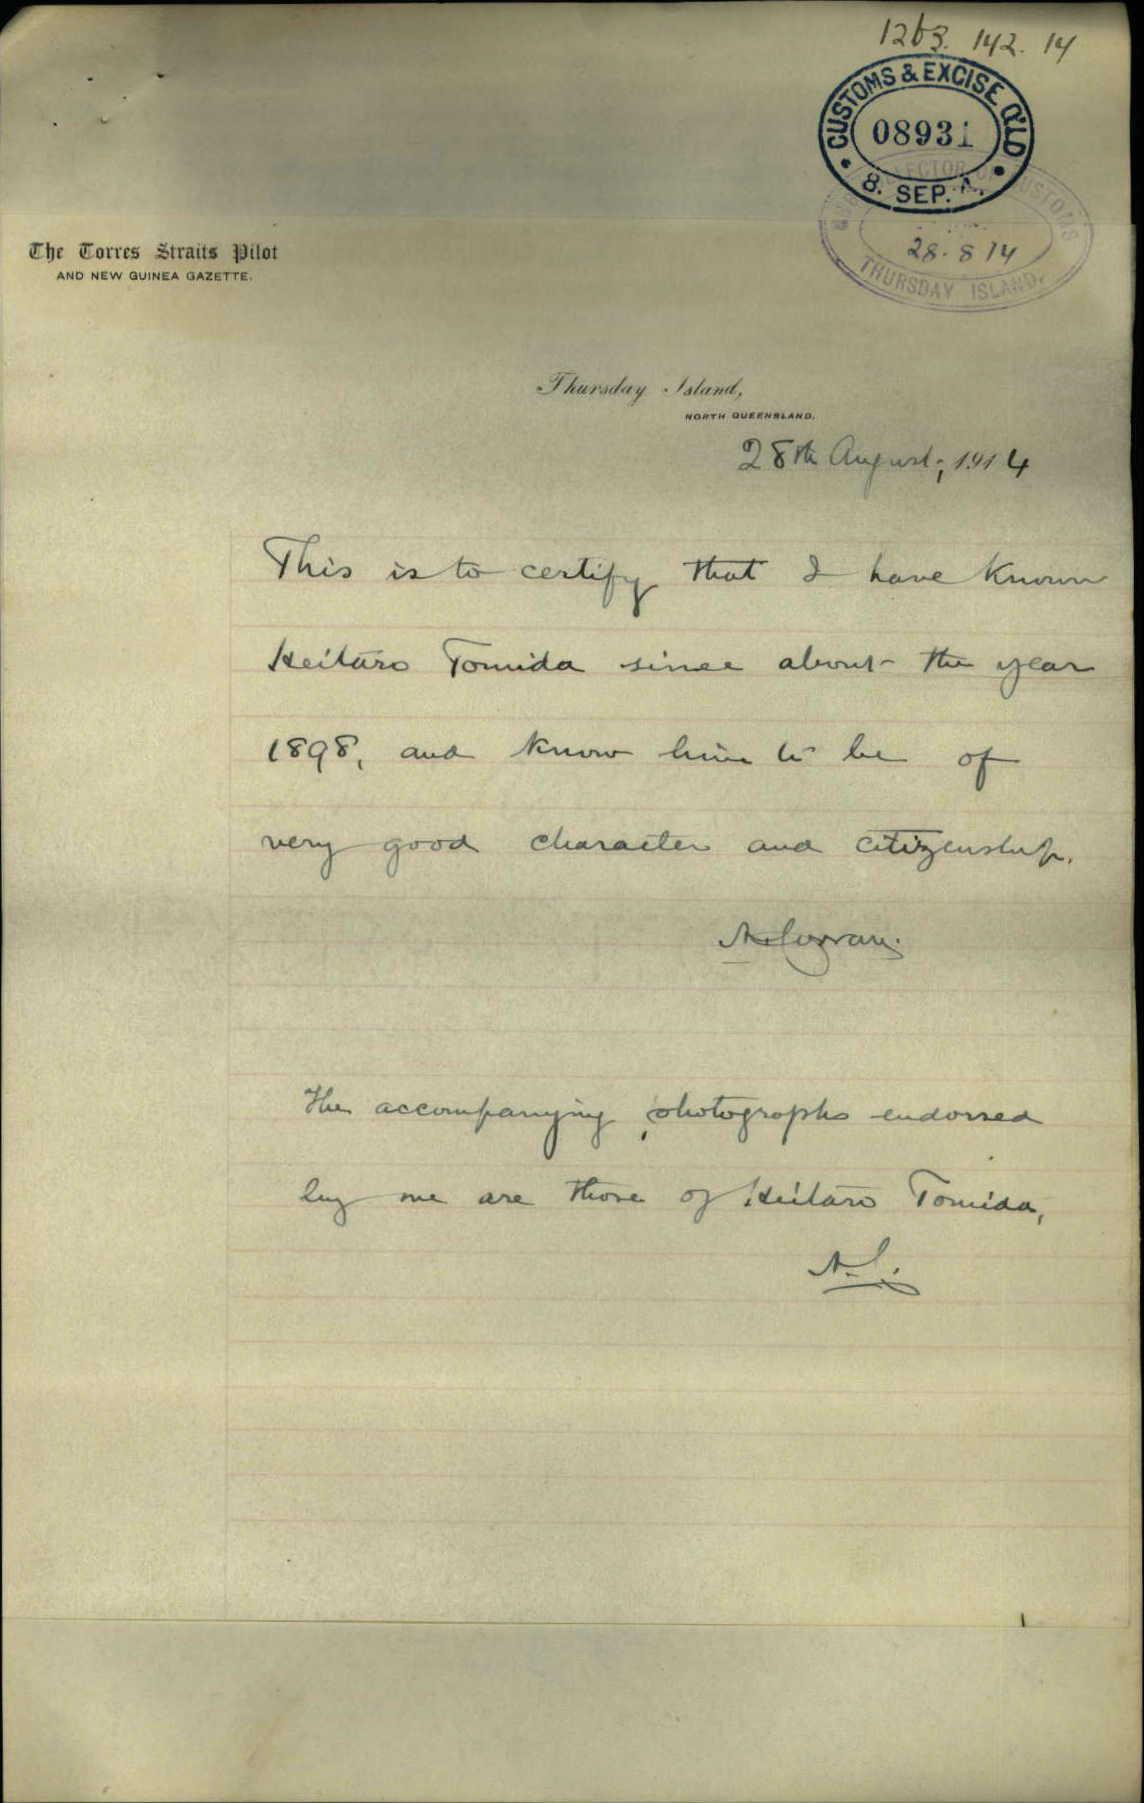 1263. 142. 14
CUSTOMS & EXCISE Q'LD
08931
8. SEP. A.
COLLECTOR OF CUSTOMS
28. 8 14
THURSDAY ISLAND.
The Torres Straits Pilot
AND NEW GUINEA GAZETTE.
Thursday Island,
NORTH QUEENSLAND.
28th August, 1914
This is to certify that I have known
Heitaro Tomida since about the year
1898, and know him to be of
very good character and citizenship.
A. Curran.
The accompanying photographs endorsed
by me are those of Heitaro Tomida,
A.C.